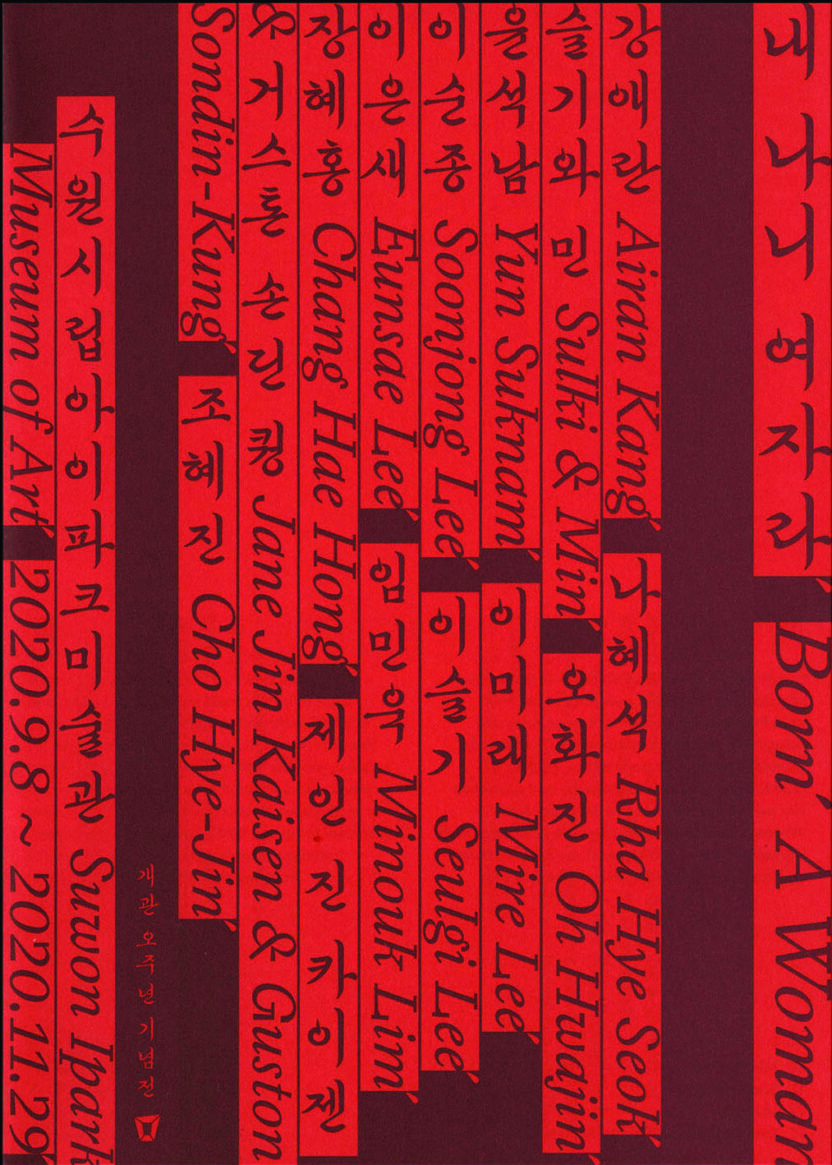 내 나니 여자라, Born, A Woman
강애란 Airan Kang, 나혜석 Rha Hye Seok,
슬기와 민 Sulki & Min, 오화진 Oh Hwajin,
윤석남 Yun Suknam, 이미래 Mire Lee,
이순종 Soonjong Lee, 이슬기 Seulgi Lee,
이은새 Eunsae Lee, 임민욱 Minouk Lim,
장혜홍 Chang Hae Hong, 제인 진 카이젠
& 거스톤 손딘 퀑 Jane Jin Kaisen & Guston
Sondin-Kung, 조혜진 Cho Hye-Jin,
개관 오주년 기념전
수원시립아이파크미술관 Suwon Ipark
Museum of Art, 2020.9.8 ~ 2020.11.29,